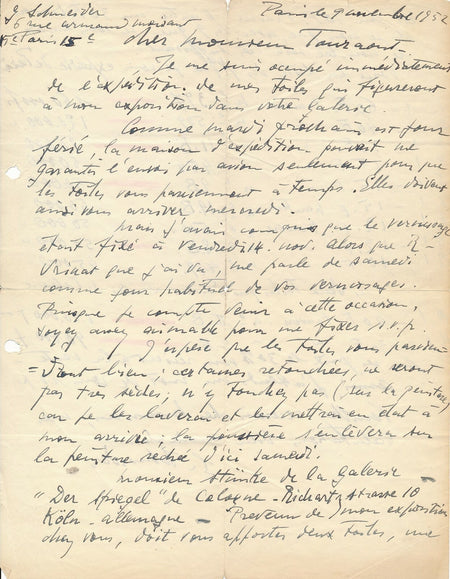 G Schneider
16 rue Armand moisant
Paris 15e
Paris le 9 novembre 1952
cher monsieur Tourzaont.
Je me suis occupé immédiatement
de l'expédition de mes toiles qui figureront
à mon exposition dans votre Galerie
Comme mardi prochain est jour
férié la maison d'expédition pouvait me
garantir l'envoi par avion seulement pour que
les toiles vous parviennent à temps. Elles doivent
ainsi vous arriver mercredi.
mais j'avais compris que le vernissage
étant fixé à vendredi 14 nov. alors que
que j'ai vu, me parle de samedi
comme jour habituel de vos vernissages.
Puisque je compte venir à cette occasion,
soyez assez aimable pour me fixer s.v.p.
J'espère que les toiles vous parviendront
bien : certaines retouchées, ne seront
pas très sèches, n'y touchez pas (sur la peinture)
car je les laverai et les mettrai en état à
mon arrivée ; la poussière s'enlèvera sur
la peinture sèche d'ici samedi.
monsieur Stünke de la galerie
"Der Spiegel" de Cologne - Richartzstrasse 10
Köln - allemagne - Prévenu de mon exposition
chez vous, doit vous apporter deux toiles, une